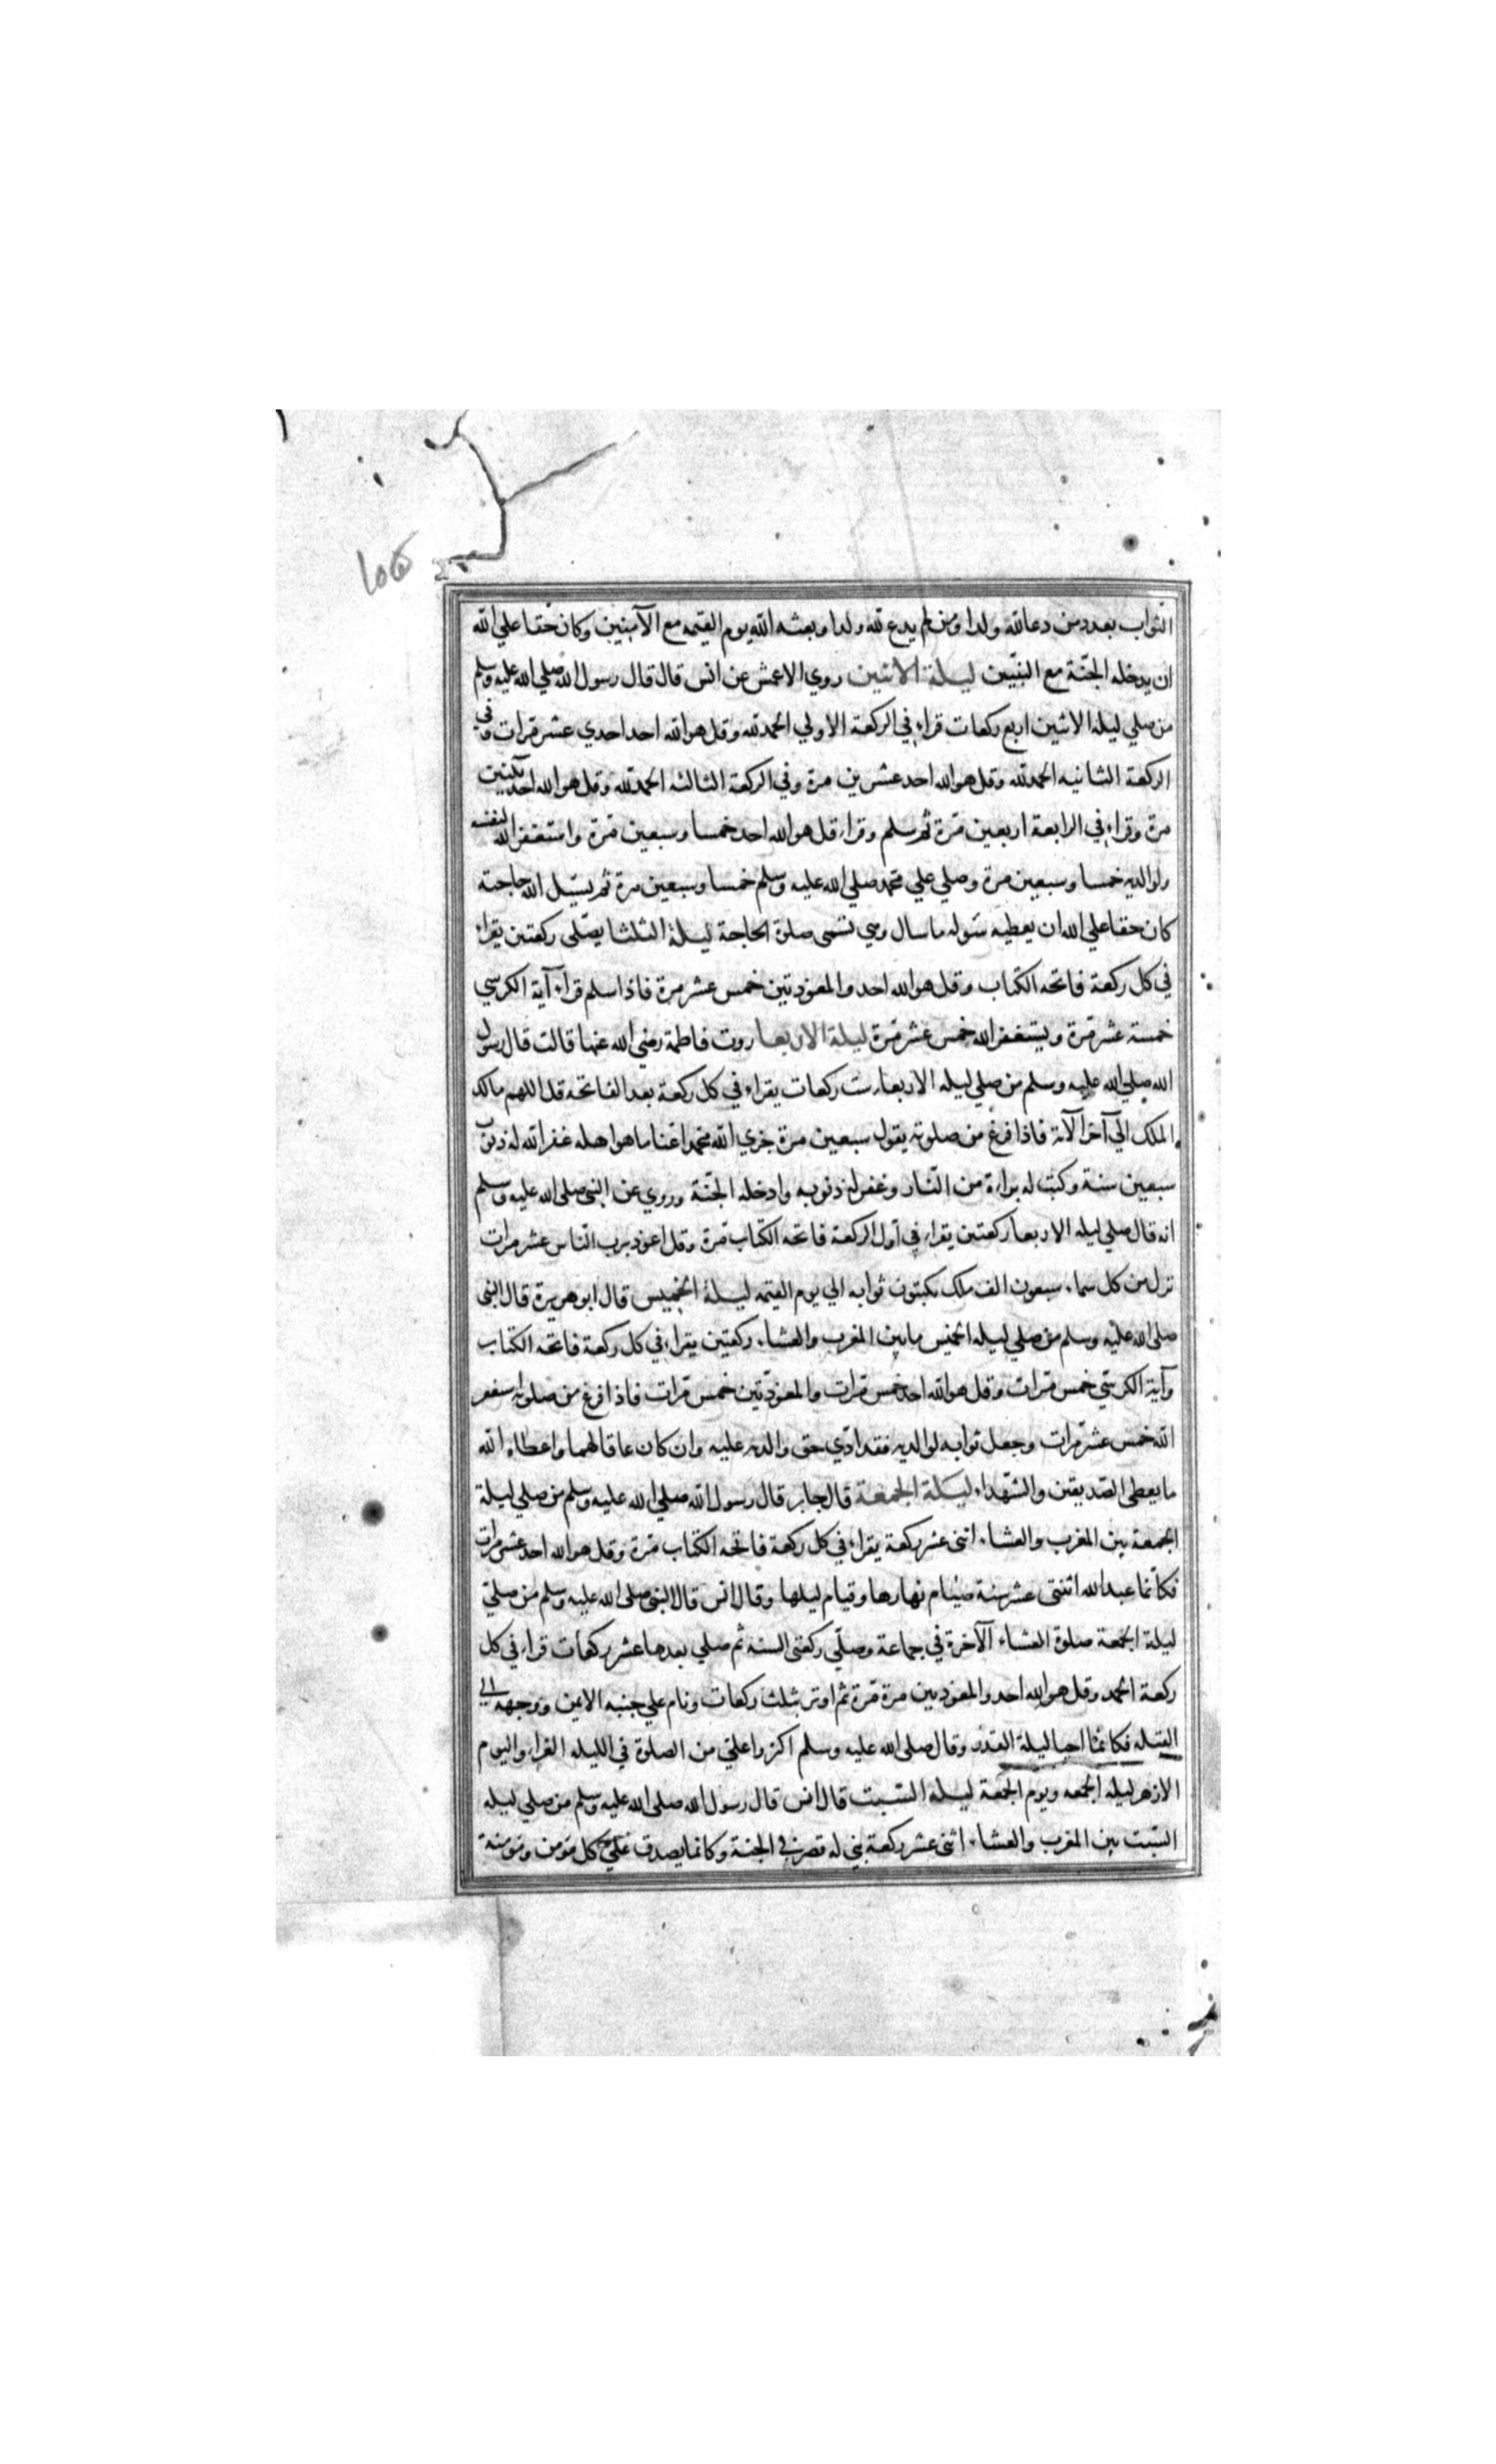 الثواب بعدد من دعا لله ولدا ومن لم يدع لله ولدا وبعثه الله يوم القيمه مع الآمنين وكان حقا علي الله
ان يدخله الجنة مع النبيين ليلة الاثنين روي الاعمش عن انس قال قال رسول الله صلي الله عليه وسلم
من صلي ليلة الاثنين اربع ركعات قراء في الركعة الاولي الحمد لله وقل هو الله احد احدي عشر مرات وفي
الركعة الثانيه الحمد لله وقل هو الله احد عشرين مرة وفي الركعة الثالثه الحمد لله وقل هو الله احد ثلثين
مرة وقراء في الرابعة اربعين مرة ثم سلم وقراء قل هو الله احد خمسا وسبعين مرة واستغفر الله لنفسه
ولوالديه خمسا وسبعين مرة وصلي علي محمد صلي الله عليه وسلم خمسا وسبعين مرة ثم يسئل الله حاجته
كان حقا علي الله ان يعطيه سوله ما سال وهي تسمى صلوة الحاجة ليلة الثلثا يصلى ركعتين يقراء
في كل ركعة فاتحه الكتاب وقل هو الله احد والمعوذتين خمس عشر مرة فاذا سلم قراء آية الكرسي
خمسة عشر مرة ويستغفر الله خمس عشر مرة ليلة الاربعا روت فاطمة رضي الله عنها قالت قال رسول
الله صلي الله عليه وسلم من صلي ليله الاربعا ست ركعات يقراء في كل ركعة بعد الفاتحه قل اللهم مالك
الملك الي آخر الآية فاذا فرغ من صلوته يقول سبعين مرة جزي الله محمدا عنا ما هو اهله غفر الله له ذنوب
سبعين سنة وكتب له براءة من النار وغفر له ذنوبه وادخله الجنة وروي عن النبي صلى الله عليه وسلم
انه قال صلي ليله الاربعا ركعتين يقراء في اول الركعة فاتحه الكتاب مرة وقل اعوذ برب الناس عشر مرات
نزل من كل سماء سبعون الف ملك يكتبون ثوابه الي يوم القيمه ليلة الخميس قال ابو هريرة قال النبى
صلى الله عليه وسلم من صلي ليله الخميس ما بين المغرب والعشاء ركعتين يقراء في كل ركعة فاتحه الكتاب
وآية الكرسي خمس مرات وقل هو الله احد خمس مرات والمعوذتين خمس مرات فاذا فرغ من صلوته استغفر
الله خمس عشر مرات وجعل ثوابه لوالديه فقد ادي حق والديه عليه وان كان عاقا لهما واعطاه الله
ما يعطى الصديقين والشهداء ليلة الجمعة قال جابر قال رسول الله صلي الله عليه وسلم من صلي ليلة
الجمعة بين المغرب والعشاء اثنى عشر ركعة يقراء في كل ركعة فاتحه الكتاب مرة وقل هو الله احد عشر مرات
فكانما عبد الله اثنتى عشر سنة صيام نهارها وقيام ليلها وقال انس قال النبى صلى الله عليه وسلم من صلي
ليلة الجمعة صلوة العشاء الآخرة في جماعة وصلي ركعتى السنه ثم صلي بعدها عشر ركعات قراء في كل
ركعة الحمد وقل هو الله احد والمعوذتين مرة مرة ثم اوتر بثلث ركعات ونام علي جنبه الايمن ووجهه الي
القبله فكانما احيا ليلة القدر وقال صلى الله عليه وسلم اكثروا علي من الصلوة في الليله الغراء واليوم
الازهر ليله الجمعه ويوم الجمعة ليلة السبت قال انس قال رسول الله صلى الله عليه وسلم من صلي ليله
السبت بين المغرب والعشاء اثنى عشر ركعة بني له قصر في الجنة وكانما يصدق علي كل مؤمن ومؤمنة